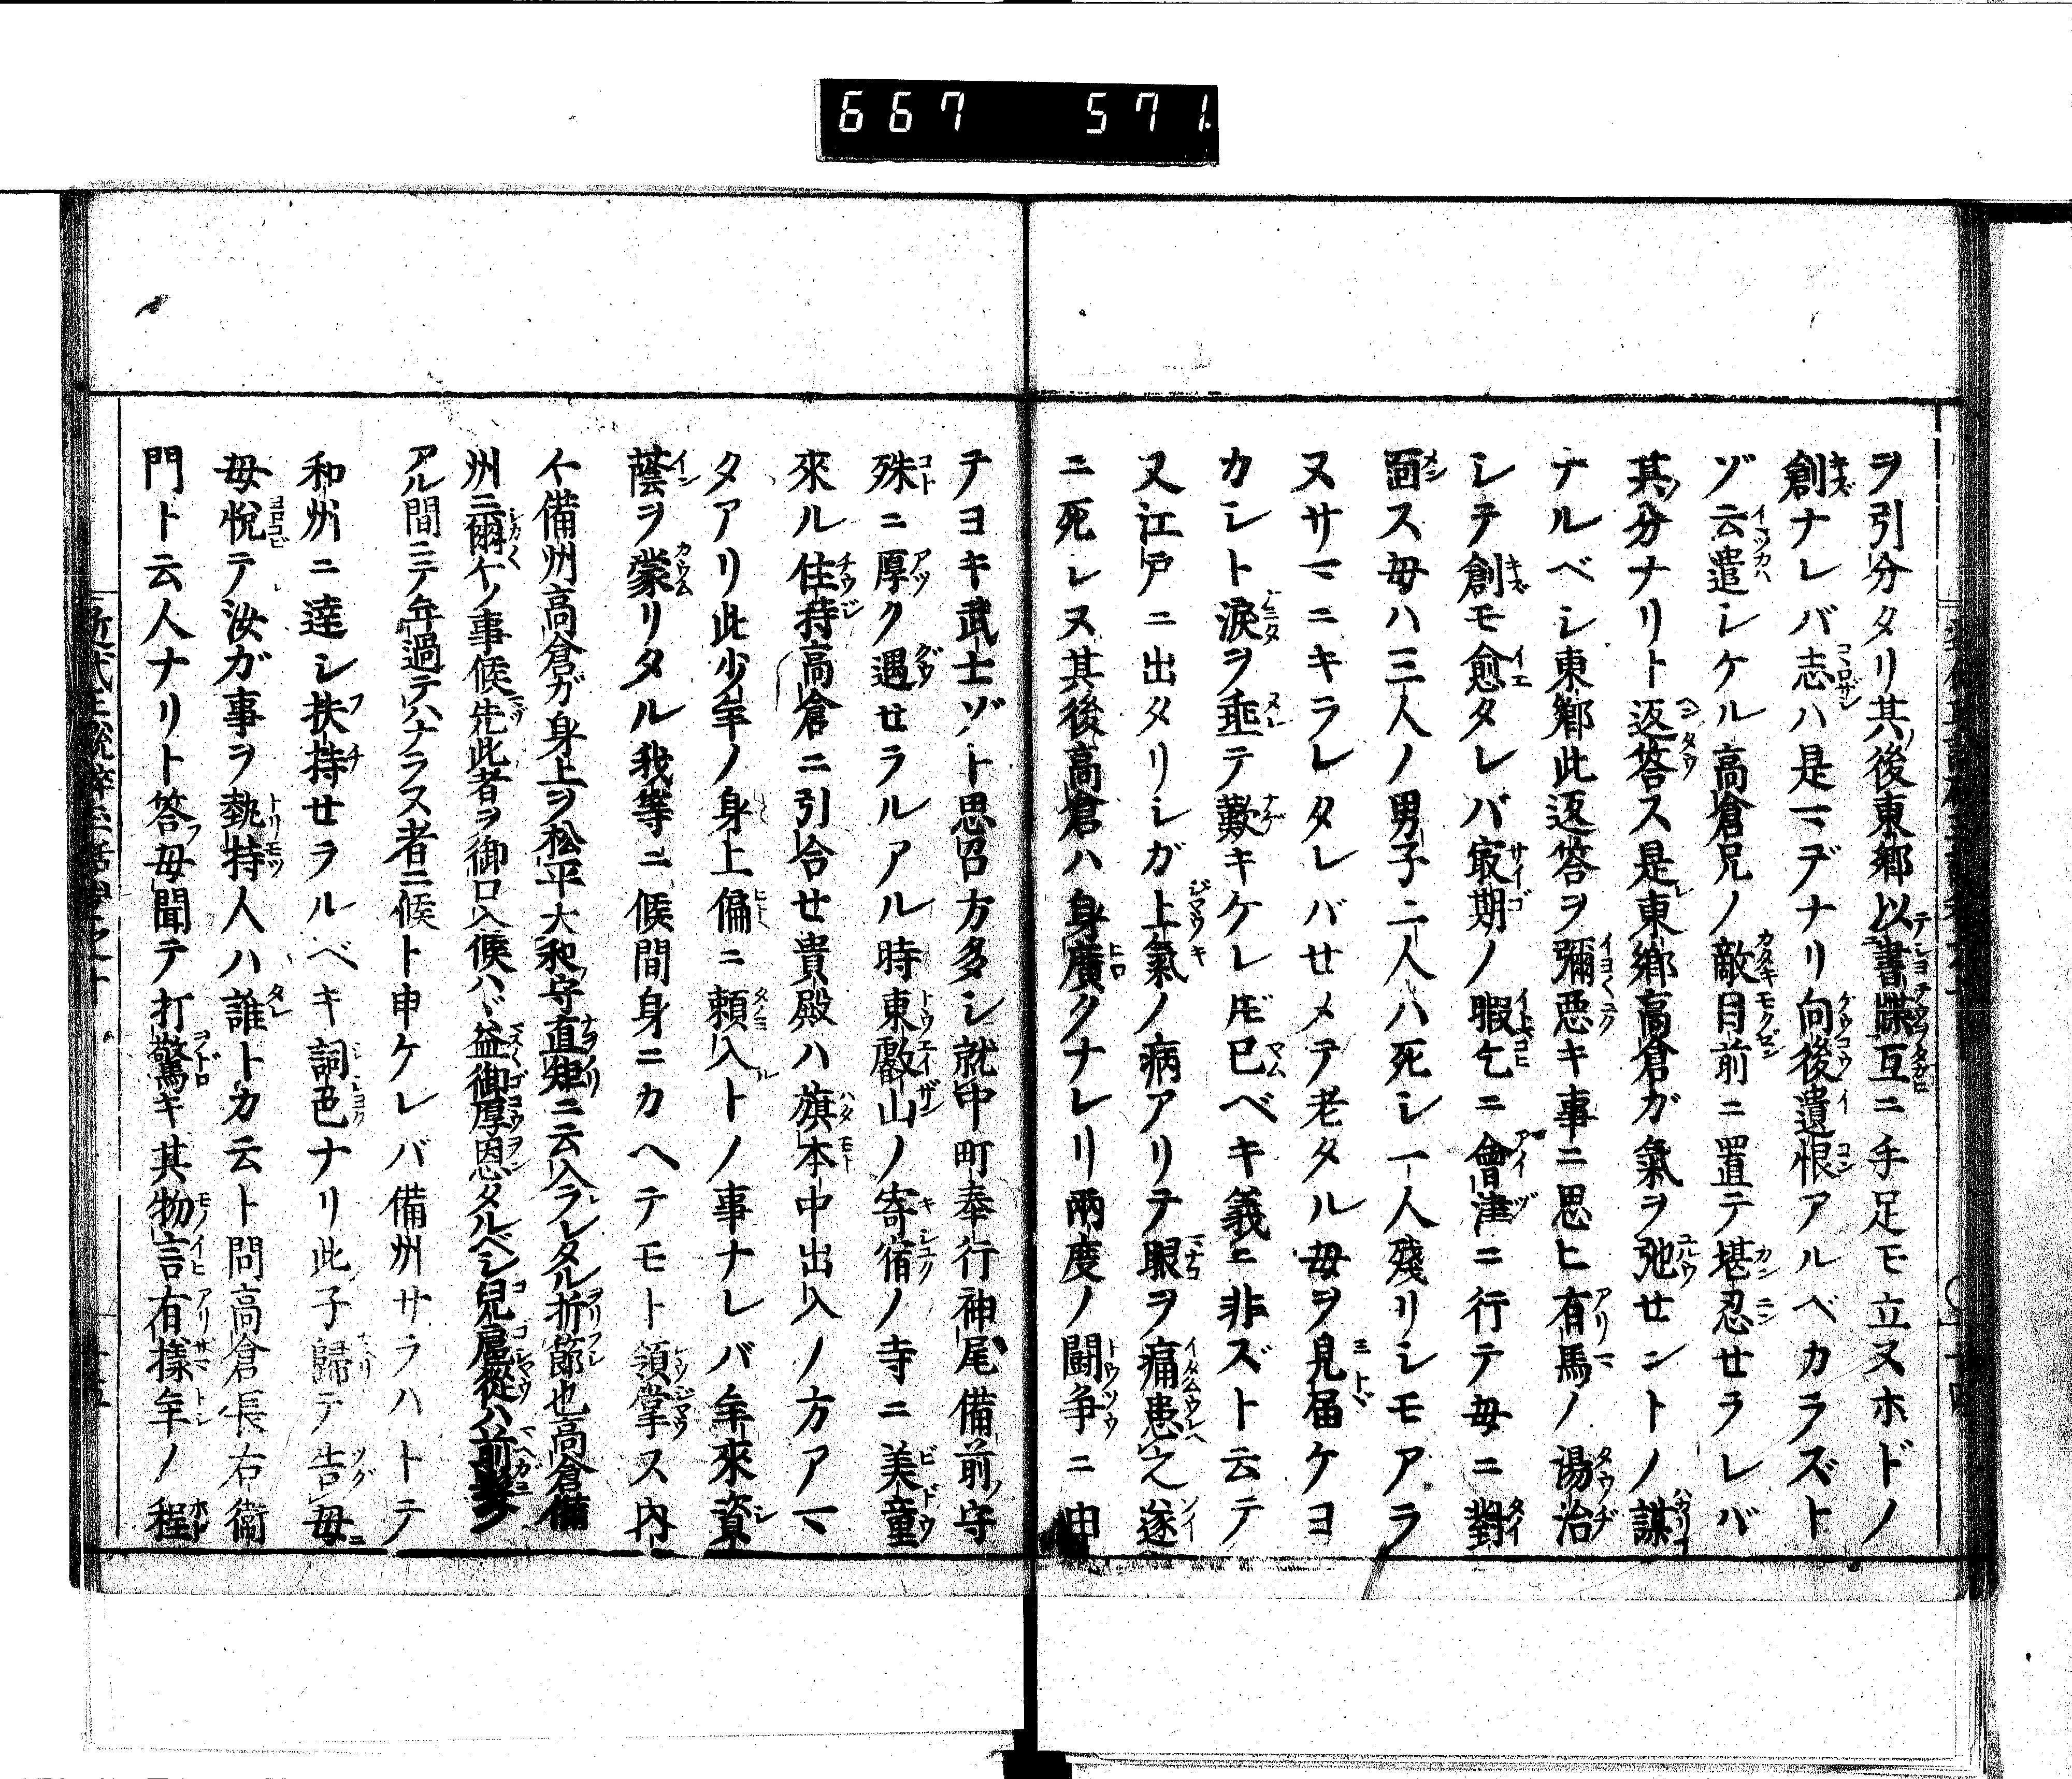 667 571
ヲ引分タリ其後東郷以書牒互ニ手足モ立ヌホドノ
創ナレバ志ハ是マデナリ向後遺恨アルベカラズト
ゾ云遣シケル高倉兄ノ敵目前ニ置テ堪忍せラレバ
其分ナリト返答ス是東郷高倉ガ氣ヲ弛せントノ謀
ナルベシ東郷此返答ヲ彌悪キ事ニ思ヒ有馬ノ湯治
シテ創モ愈タレバ㝡期ノ暇乞ニ會津ニ行テ母ニ對
面ス母ハ三人ノ男子二人ハ死シ一人殘リシモアラ
ヌサマニキラレタレバせメテ老タル母ヲ見届ケヨ
カシト淚ヲ垂テ歎キケレ𪜈已ベキ義ニ非ズト云テ
又江戸ニ出タリシガ上氣ノ病アリテ眼ヲ痛患之遂
ニ死レヌ其後高倉ハ身廣クナレリ兩度ノ闘争ニ中
テヨキ武士ゾト思召方多シ就中町奉行神尾備前守
殊ニ厚ク遇せラルアル時東叡山ノ寄宿ノ寺ニ美童
來ル住持高倉ニ引合せ貴殿ハ旗本中出入ノ方アマ
タアリ此少年ノ身上偏ニ頼入トノ事ナレバ年來資
蔭ヲ蒙リタル我等ニ候間身ニカヘテモト領掌ス内
々備州高倉ガ身上ヲ松平大和守直矩ニ云入ラレタル折節也高倉備
州ニ爾々ノ事候先此者ヲ御口入候ハヾ益御厚恩タルベシ兒扈從ハ前髪ノ
アル間ニテ年過テハナラヌ者ニ候ト申ケレバ備州サラハトテ
和州ニ達シ扶持せラルベキ詞色ナリ此子歸テ告母
母悅テ汝ガ事ヲ執持人ハ誰トカ云ト問高倉長右衞
門ト云人ナリト答母聞テ打驚キ其物言有樣年ノ程